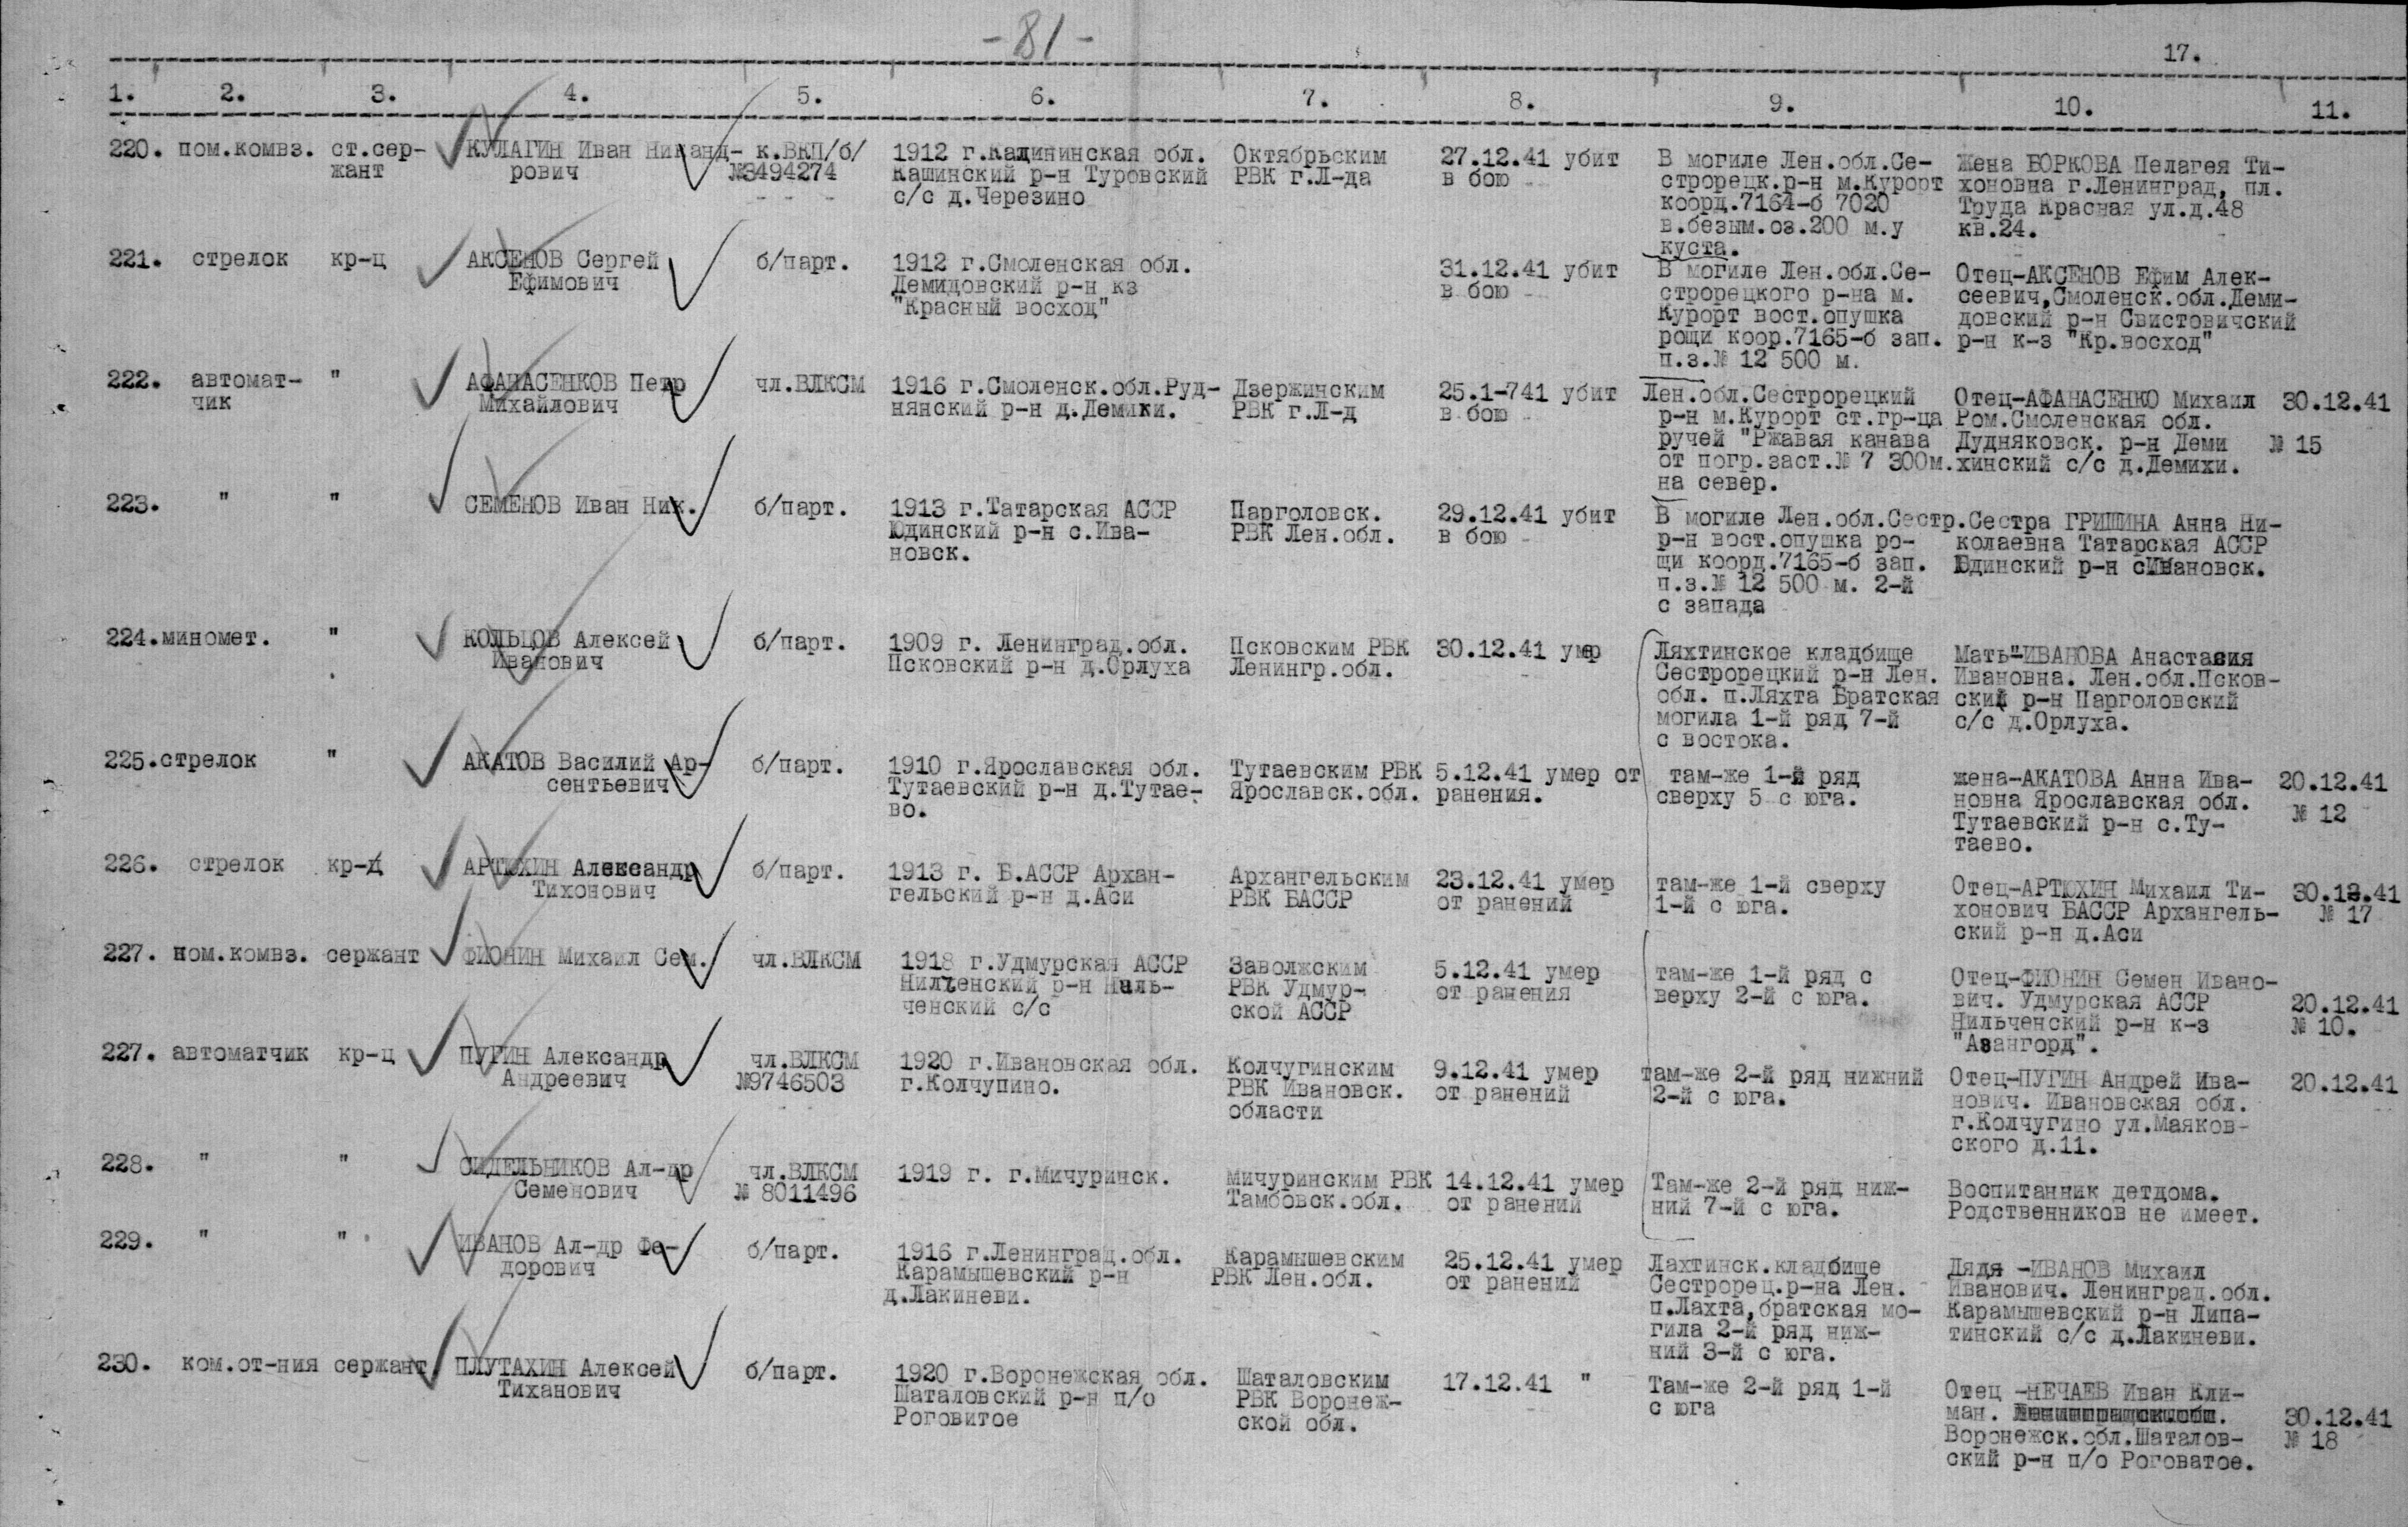 -81-
17.
1. 2. 3. 4. 5. 6. 7. 8. 9. 10. 11.
220. пом.комвз. ст.сер- КУЛАГИН Иван Никанд- к.ВКП/б/ 1912 г.Калининская обл. Октябрьским 27.12.41 убит В могиле Лен.обл.Се- Жена БОРКОВА Пелагея Ти-
жант рович №3494274 Кашинский р-н Туровский РВК г.Л-да в бою строрецк.р-н м.Курорт хоновна г.Ленинград, пл.
с/с д.Черезино коорд.7164-б 7020 Труда Красная ул.д.48
в.безым.оз.200 м.у кв.24.
куста.
221. стрелок кр-ц АКСЕНОВ Сергей б/парт. 1912 г.Смоленская обл. 31.12.41 убит В могиле Лен.обл.Се- Отец-АКСЕНОВ Ефим Алек-
Ефимович Демидовский р-н кз в бою строрецкого р-на м. сеевич,Смоленск.обл.Деми-
"Красный восход" Курорт вост.опушка довский р-н Свистовичский
рощи коор.7165-б зап. р-н к-з "Кр.восход"
п.з.№ 12 500 м.
222. автомат- " АФАНАСЕНКОВ Петр чл.ВЛКСМ 1916 г.Смоленск.обл.Руд- Дзержинским 25.1-741 убит Лен.обл.Сестрорецкий Отец-АФАНАСЕНКО Михаил 30.12.41
чик Михайлович нянский р-н д.Демики. РВК г.Л-д в бою р-н м.Курорт ст.гр-ца Ром.Смоленская обл.
ручей "Ржавая канава Дудняковск. р-н Деми № 15
от погр.заст.№ 7 300м. хинский с/с д.Демихи.
на север.
223. " " СЕМЕНОВ Иван Ник. б/парт. 1913 г.Татарская АССР Парголовск. 29.12.41 убит В могиле Лен.обл.Сестр. Сестра ГРИШИНА Анна Ни-
Юдинский р-н с.Ива- РВК Лен.обл. в бою р-н вост.опушка ро- колаевна Татарская АССР
новск. щи коорд.7165-б зап. Юдинский р-н сИвановск.
п.з.№ 12 500 м. 2-й
с запада
224. миномет. " КОЛЬЦОВ Алексей б/парт. 1909 г. Ленинград.обл. Псковским РВК 30.12.41 умер Ляхтинское кладбище Мать"-ИВАНОВА Анастасия
Иванович Псковский р-н д.Орлуха Ленингр.обл. Сестрорецкий р-н Лен. Ивановна. Лен.обл.Псков-
обл. п.Ляхта Братская ский р-н Парголовский
могила 1-й ряд 7-й с/с д.Орлуха.
с востока.
225. стрелок " АКАТОВ Василий Ар- б/парт. 1910 г.Ярославская обл. Тутаевским РВК 5.12.41 умер от там-же 1-й ряд жена-АКАТОВА Анна Ива- 20.12.41
сентьевич Тутаевский р-н д.Тутае- Ярославск.обл. ранения. сверху 5 с юга. новна Ярославская обл.
во. Тутаевский р-н с.Ту- № 12
таево.
226. стрелок кр-ц АРТЮХИН Александр б/парт. 1913 г. Б.АССР Архан- Архангельским 23.12.41 умер там-же 1-й сверху Отец-АРТЮХИН Михаил Ти- 30.12.41
Тихонович гельский р-н д.Аси РВК БАССР от ранений 1-й с юга. хонович БАССР Архангель- № 17
ский р-н д.Аси
227. пом.комвз. сержант ФИОНИН Михаил Сем. чл.ВЛКСМ 1918 г.Удмурская АССР Заволжским 5.12.41 умер там-же 1-й ряд с Отец-ФИОНИН Семен Ивано-
Нилченский р-н Ниль- РВК Удмур- от ранения верху 2-й с юга. вич. Удмурская АССР 20.12.41
ченский с/с ской АССР Нильченский р-н к-з № 10.
"Авангорд".
227. автоматчик кр-ц ПУГИН Александр чл.ВЛКСМ 1920 г.Ивановская обл. Колчугинским 9.12.41 умер там-же 2-й ряд нижний Отец-ПУГИН Андрей Ива- 20.12.41
Андреевич №9746503 г.Колчупино. РВК Ивановск. от ранений 2-й с юга. нович. Ивановская обл.
области г.Колчугино ул.Маяков-
ского д.11.
228. " " СИДЕЛЬНИКОВ Ал-др чл.ВЛКСМ 1919 г. г.Мичуринск. Мичуринским РВК 14.12.41 умер Там-же 2-й ряд ниж- Воспитанник детдома.
Семенович № 8011496 Тамбовск.обл. от ранений ний 7-й с юга. Родственников не имеет.
229. " " ИВАНОВ Ал-др Фе- б/парт. 1916 г.Ленинград.обл. Карамышевским 25.12.41 умер Лахтинск.кладбище Дядя -ИВАНОВ Михаил
дорович Карамышевский р-н РВК Лен.обл. от ранений Сестрорец.р-на Лен. Иванович. Ленинград.обл.
д.Лакиневи. п.Лахта,братская мо- Карамышевский р-н Липа-
гила 2-й ряд ниж- тинский с/с д.Лакиневи.
ний 3-й с юга.
230. ком.от-ния сержант ПЛУТАХИН Алексей б/парт. 1920 г.Воронежская обл. Шаталовским 17.12.41 " Там-же 2-й ряд 1-й Отец -НЕЧАЕВ Иван Кли-
Тиханович Шаталовский р-н п/о РВК Воронеж- с юга ман. 30.12.41
Роговитое ской обл. Воронежск.обл.Шаталов- № 18
ский р-н п/о Роговатое.